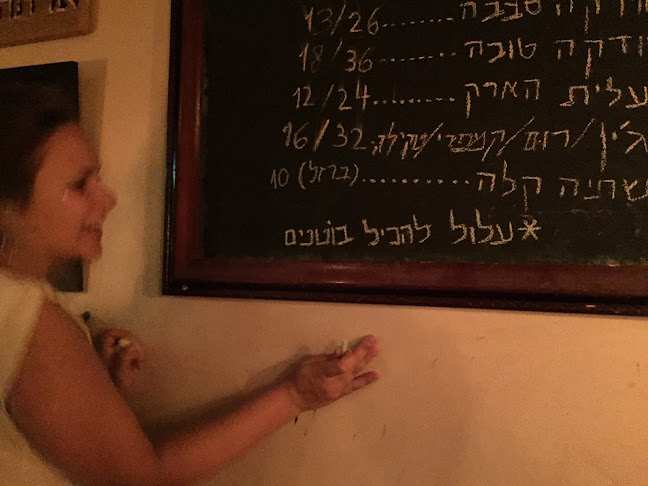 ודקה סבבה........13/26
וודקה טובה..........18/36
עלית הארק..........12/24
ג'ין/רום/קמפרי/טקילה 16/32
שתיה קלה...........(ברזל) 10
*עלול להכיל בוטנים